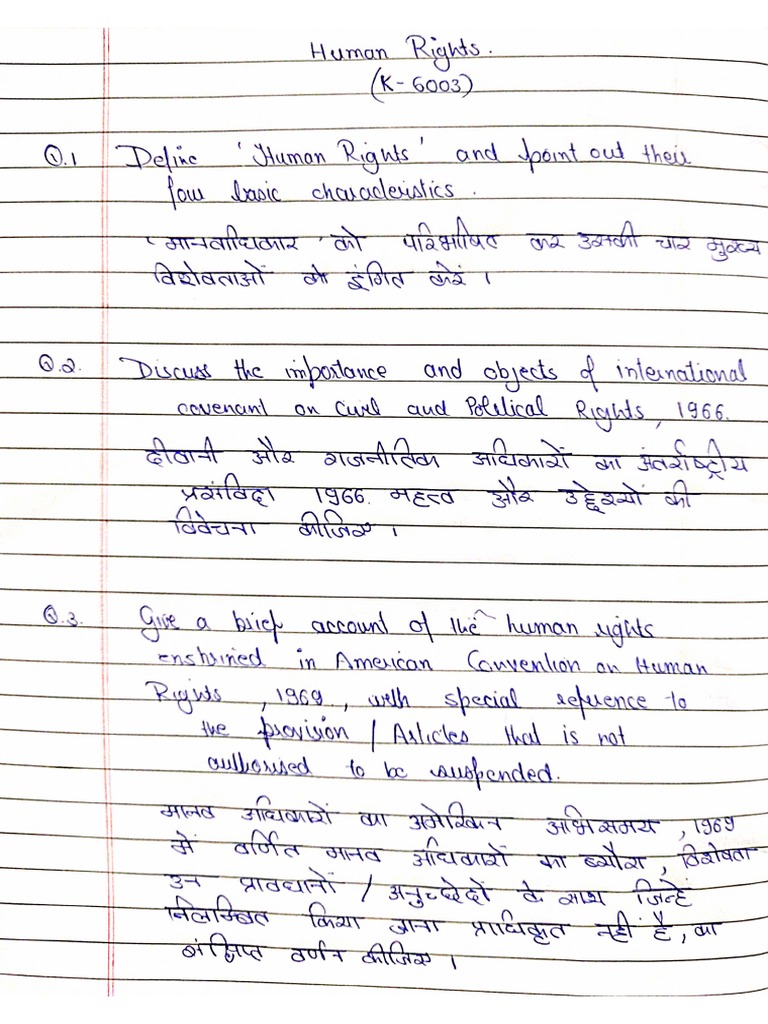 Human Rights.
(K-6003)
Q.1 Define 'Human Rights' and point out their
four basic characteristics.
'मानवाधिकार' को परिभाषित कर उसकी चार मुख्य
विशेषताओं को इंगित करें ।
Q.2. Discuss the importance and objects of international
covenant on Civil and Political Rights, 1966.
दीवानी और राजनीतिक अधिकारों का अंतर्राष्ट्रीय
प्रसंविदा 1966. महत्व और उद्देश्यों की
विवेचना कीजिए ।
Q.3. Give a brief account of the human rights
enshrined in American Convention on Human
Rights, 1969, with special reference to
the provision / Articles that is not
authorised to be suspended.
मानव अधिकारों का अमेरिकन अभिसमय, 1969
में वर्णित मानव अधिकारों का ब्यौरा, विशेषता
उन प्रावधानों / अनुच्छेदों के साथ जिन्हें
निलम्बित किया जाना प्राधिकृत नहीं है, का
संक्षिप्त वर्णन कीजिए ।